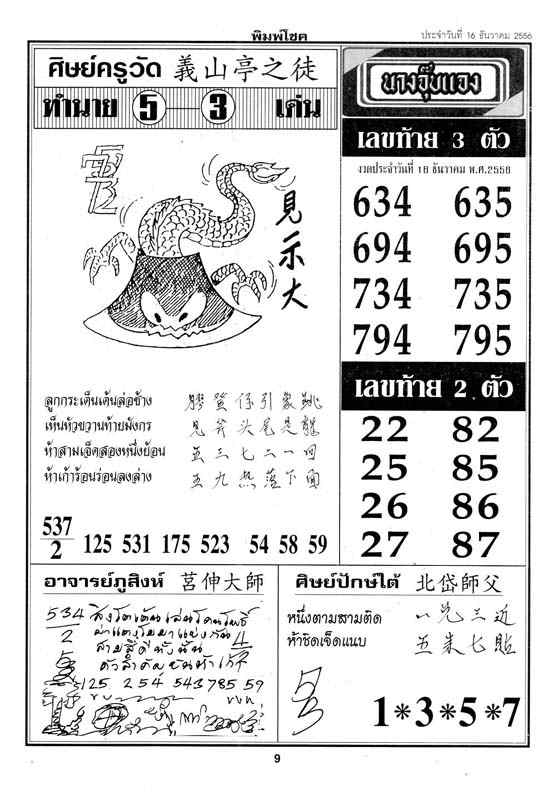 พิมพ์โชค
ประจำวันที่ 16 ธันวาคม 2556
ศิษย์ครูวัด 義山亭之徒
ทำนาย 5 — 3 เด่น
見示大
ลูกกระเด็นเต้นล่อช้าง
เห็นหัวขวานท้ายมังกร
ห้าสามเจ็ดสองหนึ่งย้อน
ห้าเก้าร้อนร่อนลงล่าง
引象跳
見斧头尾是龍
五三七二一回
五九热落下面
537/2 125 531 175 523 54 58 59
นางจุ๊บแจง
เลขท้าย 3 ตัว
งวดประจำวันที่ 16 ธันวาคม พ.ศ.2556
634 635
694 695
734 735
794 795
เลขท้าย 2 ตัว
22 82
25 85
26 86
27 87
อาจารย์ภูสิงห์ 莒伸大師
534
2
125 254 543 785 59
ศิษย์ปักษ์ใต้ 北岱師父
หนึ่งตามสามติด
ห้าชิดเจ็ดแนบ
三近
五朱七貼
1*3*5*7
9